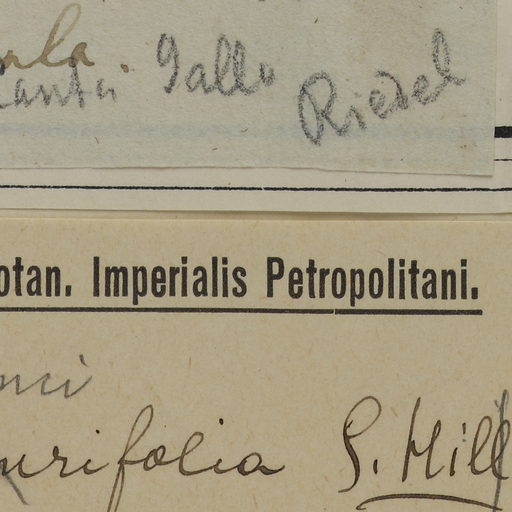 ula.
Gallo Riedel
otan. Imperialis Petropolitani.
mii
urifolia G. Hill